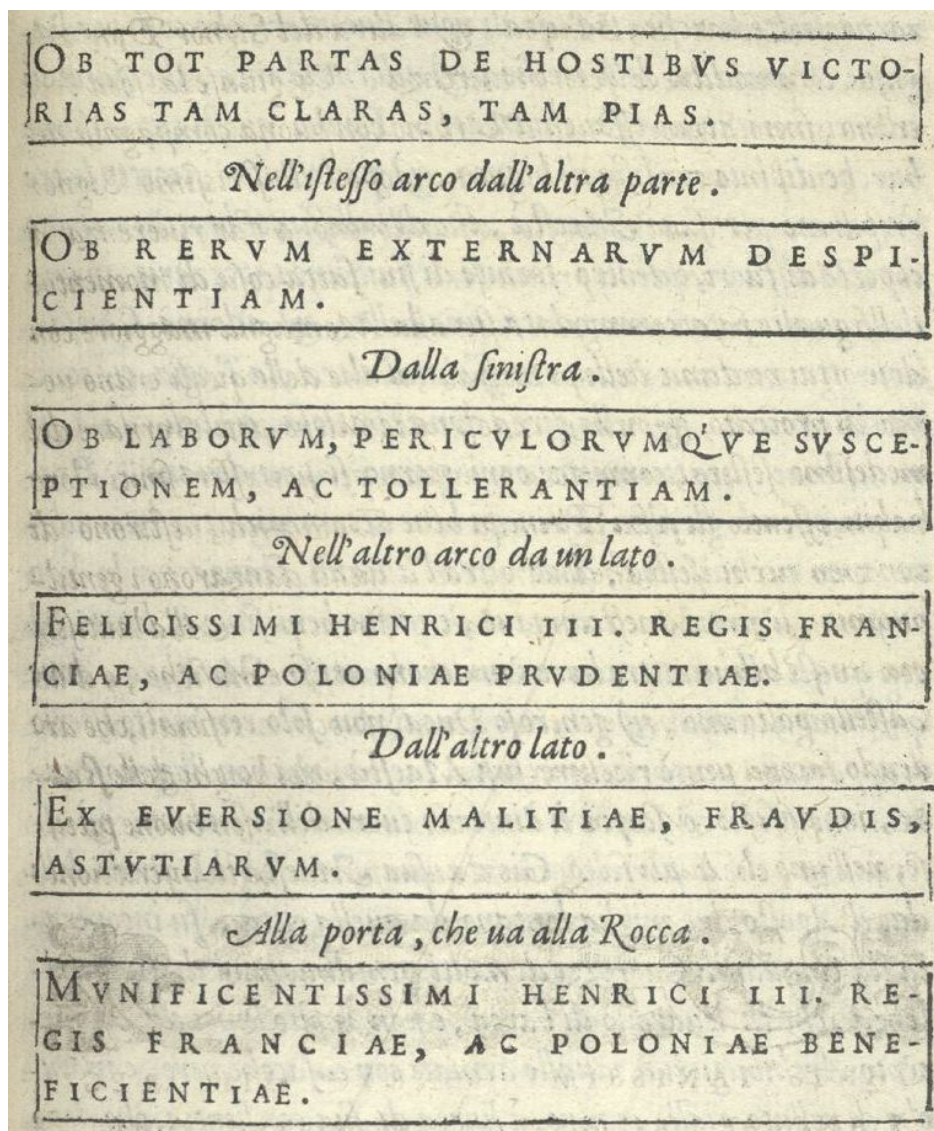 OB TOT PARTAS DE HOSTIBVS VICTO-
RIAS TAM CLARAS, TAM PIAS.
Nell'iſteſſo arco dall'altra parte.
OB RERVM EXTERNARVM DESPI-
CIENTIAM.
Dalla ſiniſtra.
OB LABORVM, PERICVLORVMQ'VE SVSCE-
PTIONEM, AC TOLLERANTIAM.
Nell'altro arco da un lato.
FELICISSIMI HENRICI III. REGIS FRAN-
CIAE, AC POLONIAE PRVDENTIAE.
Dall'altro lato.
EX EVERSIONE MALITIAE, FRAVDIS,
ASTVTIARVM.
Alla porta, che ua alla Rocca.
MVNIFICENTISSIMI HENRICI III. RE-
GIS FRANCIAE, AC POLONIAE BENE-
FICIENTIAE.